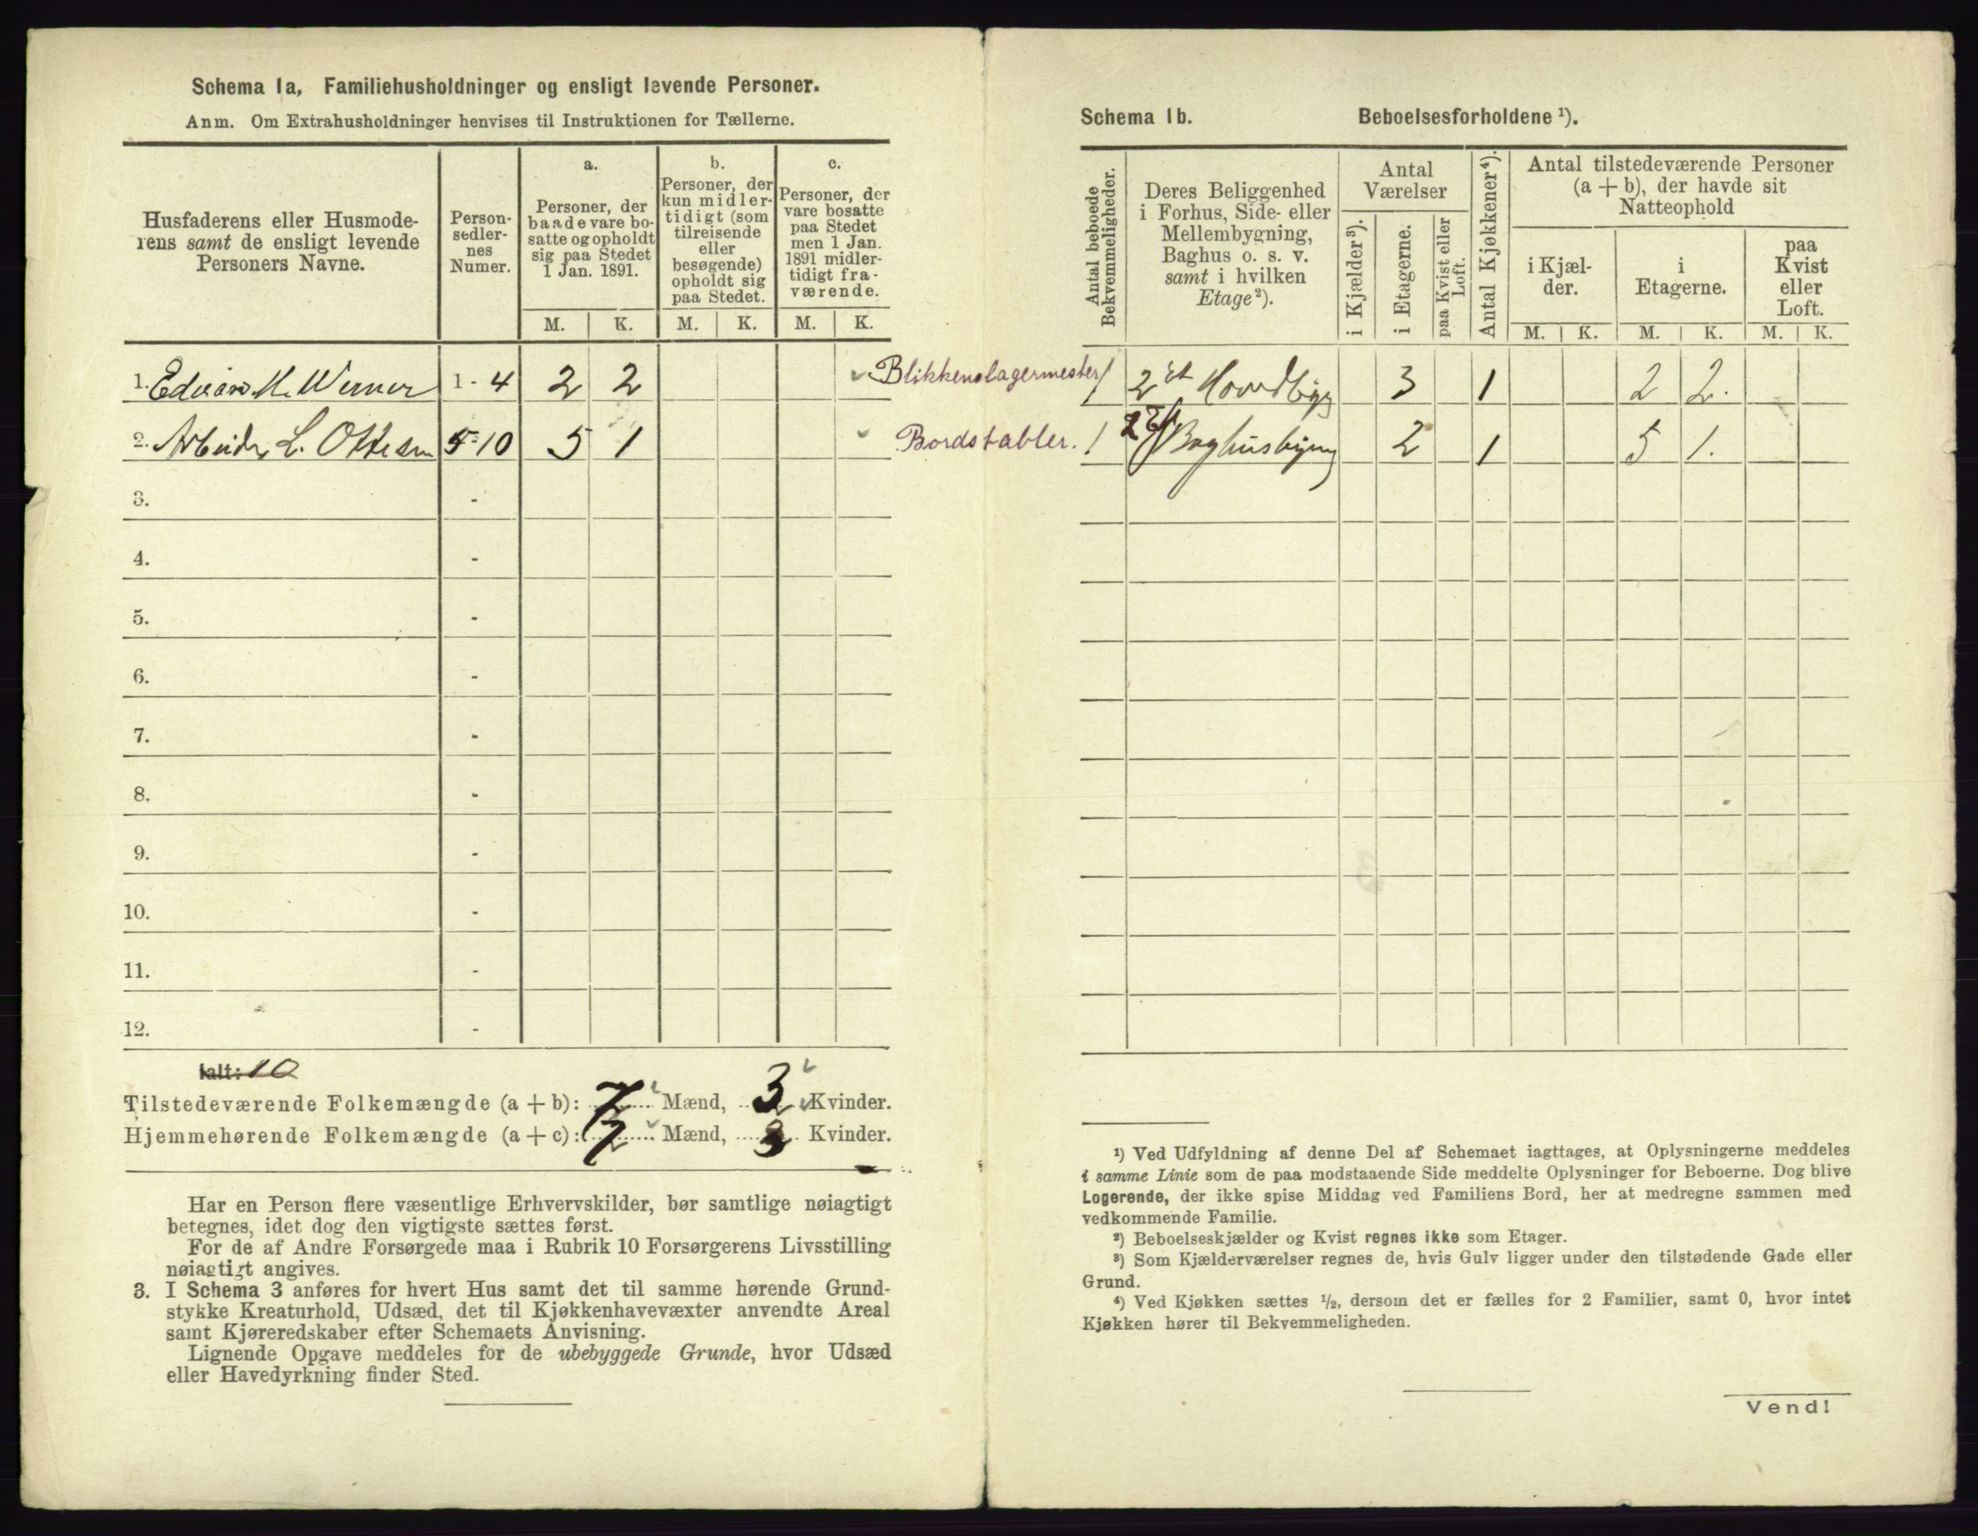 Schema 1a, Familiehusholdninger og ensligt levende Personer.
Anm. Om Extrahusholdninger henvises til Instruktionen for Tællerne.
Husfaderens eller Husmode-
rens samt de ensligt levende
Personers Navne.
Person-
sedler-
nes
Numer.
a.
Personer, der
baade vare bo-
satte og opholdt
sig paa Stedet
1 Jan. 1891.
b.
Personer, der
kun midler-
tidigt (som
tilreisende
eller
besøgende)
opholdt sig
paa Stedet.
c.
Personer, der
vare bosatte
paa Stedet
men 1 Jan.
1891 midler-
tidigt fra-
værende.
M. K. M. K. M. K.
1. Edvard M. Werner 1 - 4 2 2 Blikkenslagermester
2. Arbeider L. Ottesen 5-10 5 1 Bordstabler.
3. -
4. -
5. -
6. -
7. -
8. -
9. -
10. -
11. -
12. -
Ialt: 10
Tilstedeværende Folkemængde (a + b): 7 Mænd, 3 Kvinder.
Hjemmehørende Folkemængde (a + c): 7 Mænd, 3 Kvinder.
Har en Person flere væsentlige Erhvervskilder, bør samtlige nøiagtigt
betegnes, idet dog den vigtigste sættes først.
For de af Andre Forsørgede maa i Rubrik 10 Forsørgerens Livsstilling
nøiagtigt angives.
3. I Schema 3 anføres for hvert Hus samt det til samme hørende Grund-
stykke Kreaturhold, Udsæd, det til Kjøkkenhavevæxter anvendte Areal
samt Kjøreredskaber efter Schemaets Anvisning.
Lignende Opgave meddeles for de ubebyggede Grunde, hvor Udsæd
eller Havedyrkning finder Sted.
Schema 1b. Beboelsesforholdene ¹).
Antal beboede
Bekvemmeligheder.
Deres Beliggenhed
i Forhus, Side- eller
Mellembygning,
Baghus o. s. v.
samt i hvilken
Etage²).
Antal
Værelser
i Kjælder³).
i Etagerne.
paa Kvist eller
Loft.
Antal Kjøkkener⁴).
Antal tilstedeværende Personer
(a + b), der havde sit
Natteophold
i Kjæl-
der.
i
Etagerne.
paa
Kvist
eller
Loft.
M. K. M. K. M. K.
1 2 Et Hovedbyg 3 1 2 2.
1 2 Et Baghusbygn 2 1 5 1.
¹) Ved Udfyldning af denne Del af Schemaet iagttages, at Oplysningerne meddeles
i samme Linie som de paa modstaaende Side meddelte Oplysninger for Beboerne. Dog blive
Logerende, der ikke spise Middag ved Familiens Bord, her at medregne sammen med
vedkommende Familie.
²) Beboelseskjælder og Kvist regnes ikke som Etager.
³) Som Kjælderværelser regnes de, hvis Gulv ligger under den tilstødende Gade eller
Grund.
⁴) Ved Kjøkken sættes ½, dersom det er fælles for 2 Familier, samt 0, hvor intet
Kjøkken hører til Bekvemmeligheden.
Vend!